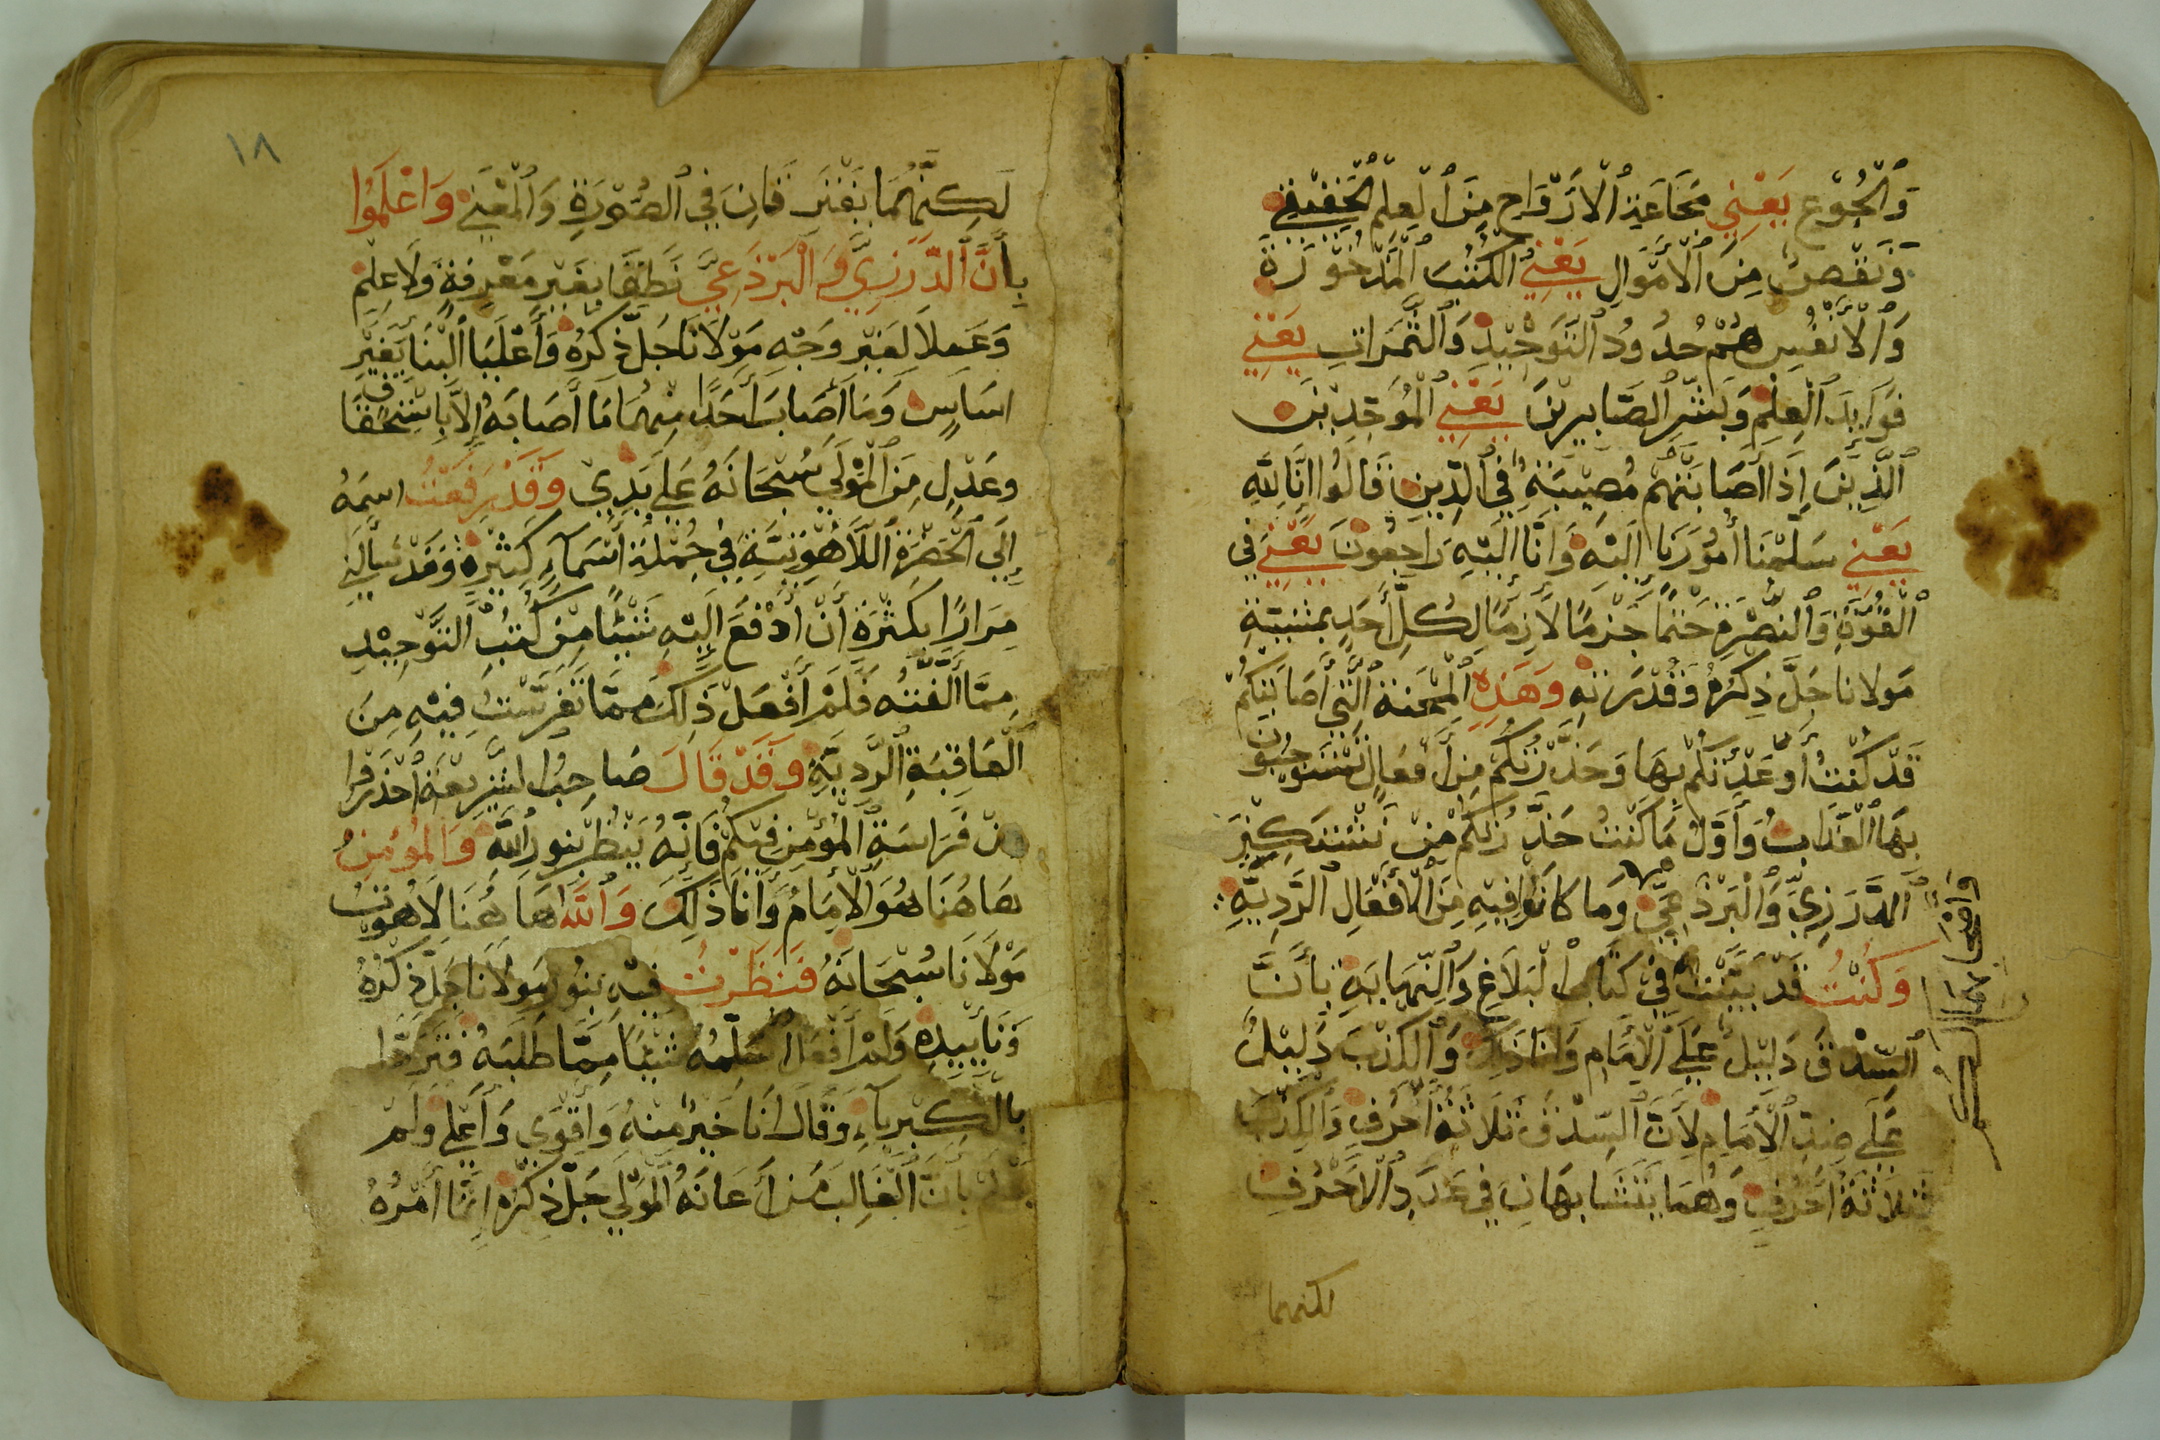 وَالْجُوْعِ يَعْنِي مَجَاعَةِ الْارْوَاحِ مِنَ الْعِلْمِ الْحَقِيْقِي
وَنَقْصٍ مِنَ الْأَمْوَالِ يَعْنِي الكُتُبَ الْمَذْخُوْرَةَ
وَالْأَنْفُسِ هُمْ حُدُوْدُ التَوْحِيْدِ وَالثَّمَرَاتِ يَعْنِي
فَوَايِدَ الْعِلْمِ وَبَشّرِ الصَّابِرِيْنَ يَعْنِي الْمُوَحِّدِيْنَ
الَّذِيْنَ إِذَا أَصَابَتْهُم مُصِيْبَةٌ فِي الدِّيْنِ قَالُوا اِنَّا لِلَّهِ
يَعْنِي سَلَّمْنَا أُمُوْرَنَا الَيْهِ وَانَّا الَيْهِ رَاجِعُونَ يَعْنِي فِي
الْقُوَّةِ وَالنُصْرَةِ حَتْمًا جَزْمًا لَازِمًا لِكُلِّ أَحَدٍ بِمَشِيَّةِ
مَولانا جَلَّ ذِكْرُهُ وَقُدْرَتِهِ وَهَذِهِ الْمِحْنَةُ الَّتِي أَصَابَتْكُمْ
قَدْ كُنْتُ أَوْعَدْتُكُمْ بِهَا وَحَذَّرْتُكُمْ مِنْ أَفْعَالٍ تَسْتَوْجِبُونَ
بِهَا الْعَذَابُ وَأَوَّلُ مَا كُنْتُ حَذَّرْتُكُمْ مِنْ نَشْتَكِيْنَ
الدَّرَزِيِّ وَالْبَرْذَعِيَّ وَمَا كَانُوْا فِيْهِ مِنَ الْأَفْعَالِ الرَّدِيَّةِ
وَكُنْتُ قَدْ بَيَّنْتُ فِي كِتَابِ الْبَلَاغِ وَالنِّهَايَةِ بِأَنَّ
السِّدْقَ دَلِيْلٌ عَلَى الْإِمَامِ وَأَنَا ذَلِكَ وَالْكَذِبَ دَلِيْلٌ
عَلَى ضِدِّ الْإِمَامِ لِأَنَّ السِّدْقَ ثَلَاثَةُ أَحْرُفٍ وَالْكِذْبَ
ثَلَاثَةُ أَحْرُفٍ وَهُمَا يَتَشَابَهَانِ فِي عَدَدِ الْأَحْرُفِ
لكنهما
١٨
لَكِنَّهُمَا يَفْتَرِقَانِ فِي الصُّوْرَةِ وَالْمَعْنَى وَاعْلَمُوا
بِأَنَّ الدَّرَزِيَّ وَالْبَرْذَعِيَّ نَطَقَا بِغَيْرِ مَعْرِفَةٍ وَلَا عِلْمٍ
وَعَمِلَا لِغَيْرِ وَجْهِ مَوْلَانَا جَلَّ ذِكْرُهُ وَأَعْلَيَا الْبِنَا بِغَيْرِ
اسَاسٍ وَمَا أَصَابَ أَحَدًا مِنْهُمَا مَا أَصَابَهُ إِلَّا بِاسْتِحْقَاقٍ
وعَدْلٍ مِنَ الْمَوْلَى سُبْحَانَهُ عَلَى يَدِيْ وَقَدْ رَفَعْتُ اسمَهُ
إِلَى الْحَضْرَةِ اللَّاهُوتِيَّةِ فِي جُمْلَةِ أَسْمَآءٍ كَثِيْرَةٍ وَقَدْ سَأَلَنِي
مِرَارًا بِكَثْرَةٍ أَنْ أَدْفَعَ إِلَيْهِ شَيْئًا مِنْ كُتُبِ التَّوْحِيْدِ
مِمَّا أَلَّفْتُهُ فَلَمْ أَفْعَلْ ذَلِكَ مِمَّا تَفَرَّسْتُ فِيْهِ مِنَ
الْعَاقِبَةِ الرَّدِيَّةِ وَقَدْ قَالَ صَاحِبُ الشَّرِيْعَةِ احْذَرُوا
مِنْ فَرَاسَةِ الْمُؤْمِنِ فِيْكُمْ فَإِنَّهُ يَنْظُرُ بِنُورِ اللَّهِ وَالْمُوءْمِنُ
هَاهُنَا هُوَ الْإِمَامُ وَأَنَا ذَلِكَ وَاللَّهُ هَاهُنَا لَاهُوْتُ
مَوْلَانَا سُبْحَانَهُ فَنَظَرْتُ فِيْهِ بِنُورِ مَولَانَا جَلَّ ذِكْرُهُ
وَتَأْيِيدِهِ وَلَمْ أَفْعَلْ أُعَلِّمُهُ شَيْئًا مِمَّا طَلَبَهُ فَتَرَدَّا
بِالْكِبْرِيَآءِ وَقَالَ انَا خَيْرٌ مِنْهُ وَأَقْوَى وَأَعْلَى وَلَمْ
يَعْلَمْ بِأَنَّ الْغَالِبَ مَنْ أَعَانَهُ الْمَوْلَى جَلَّ ذِكْرُهُ إِنَّمَا أَمْرُهُ